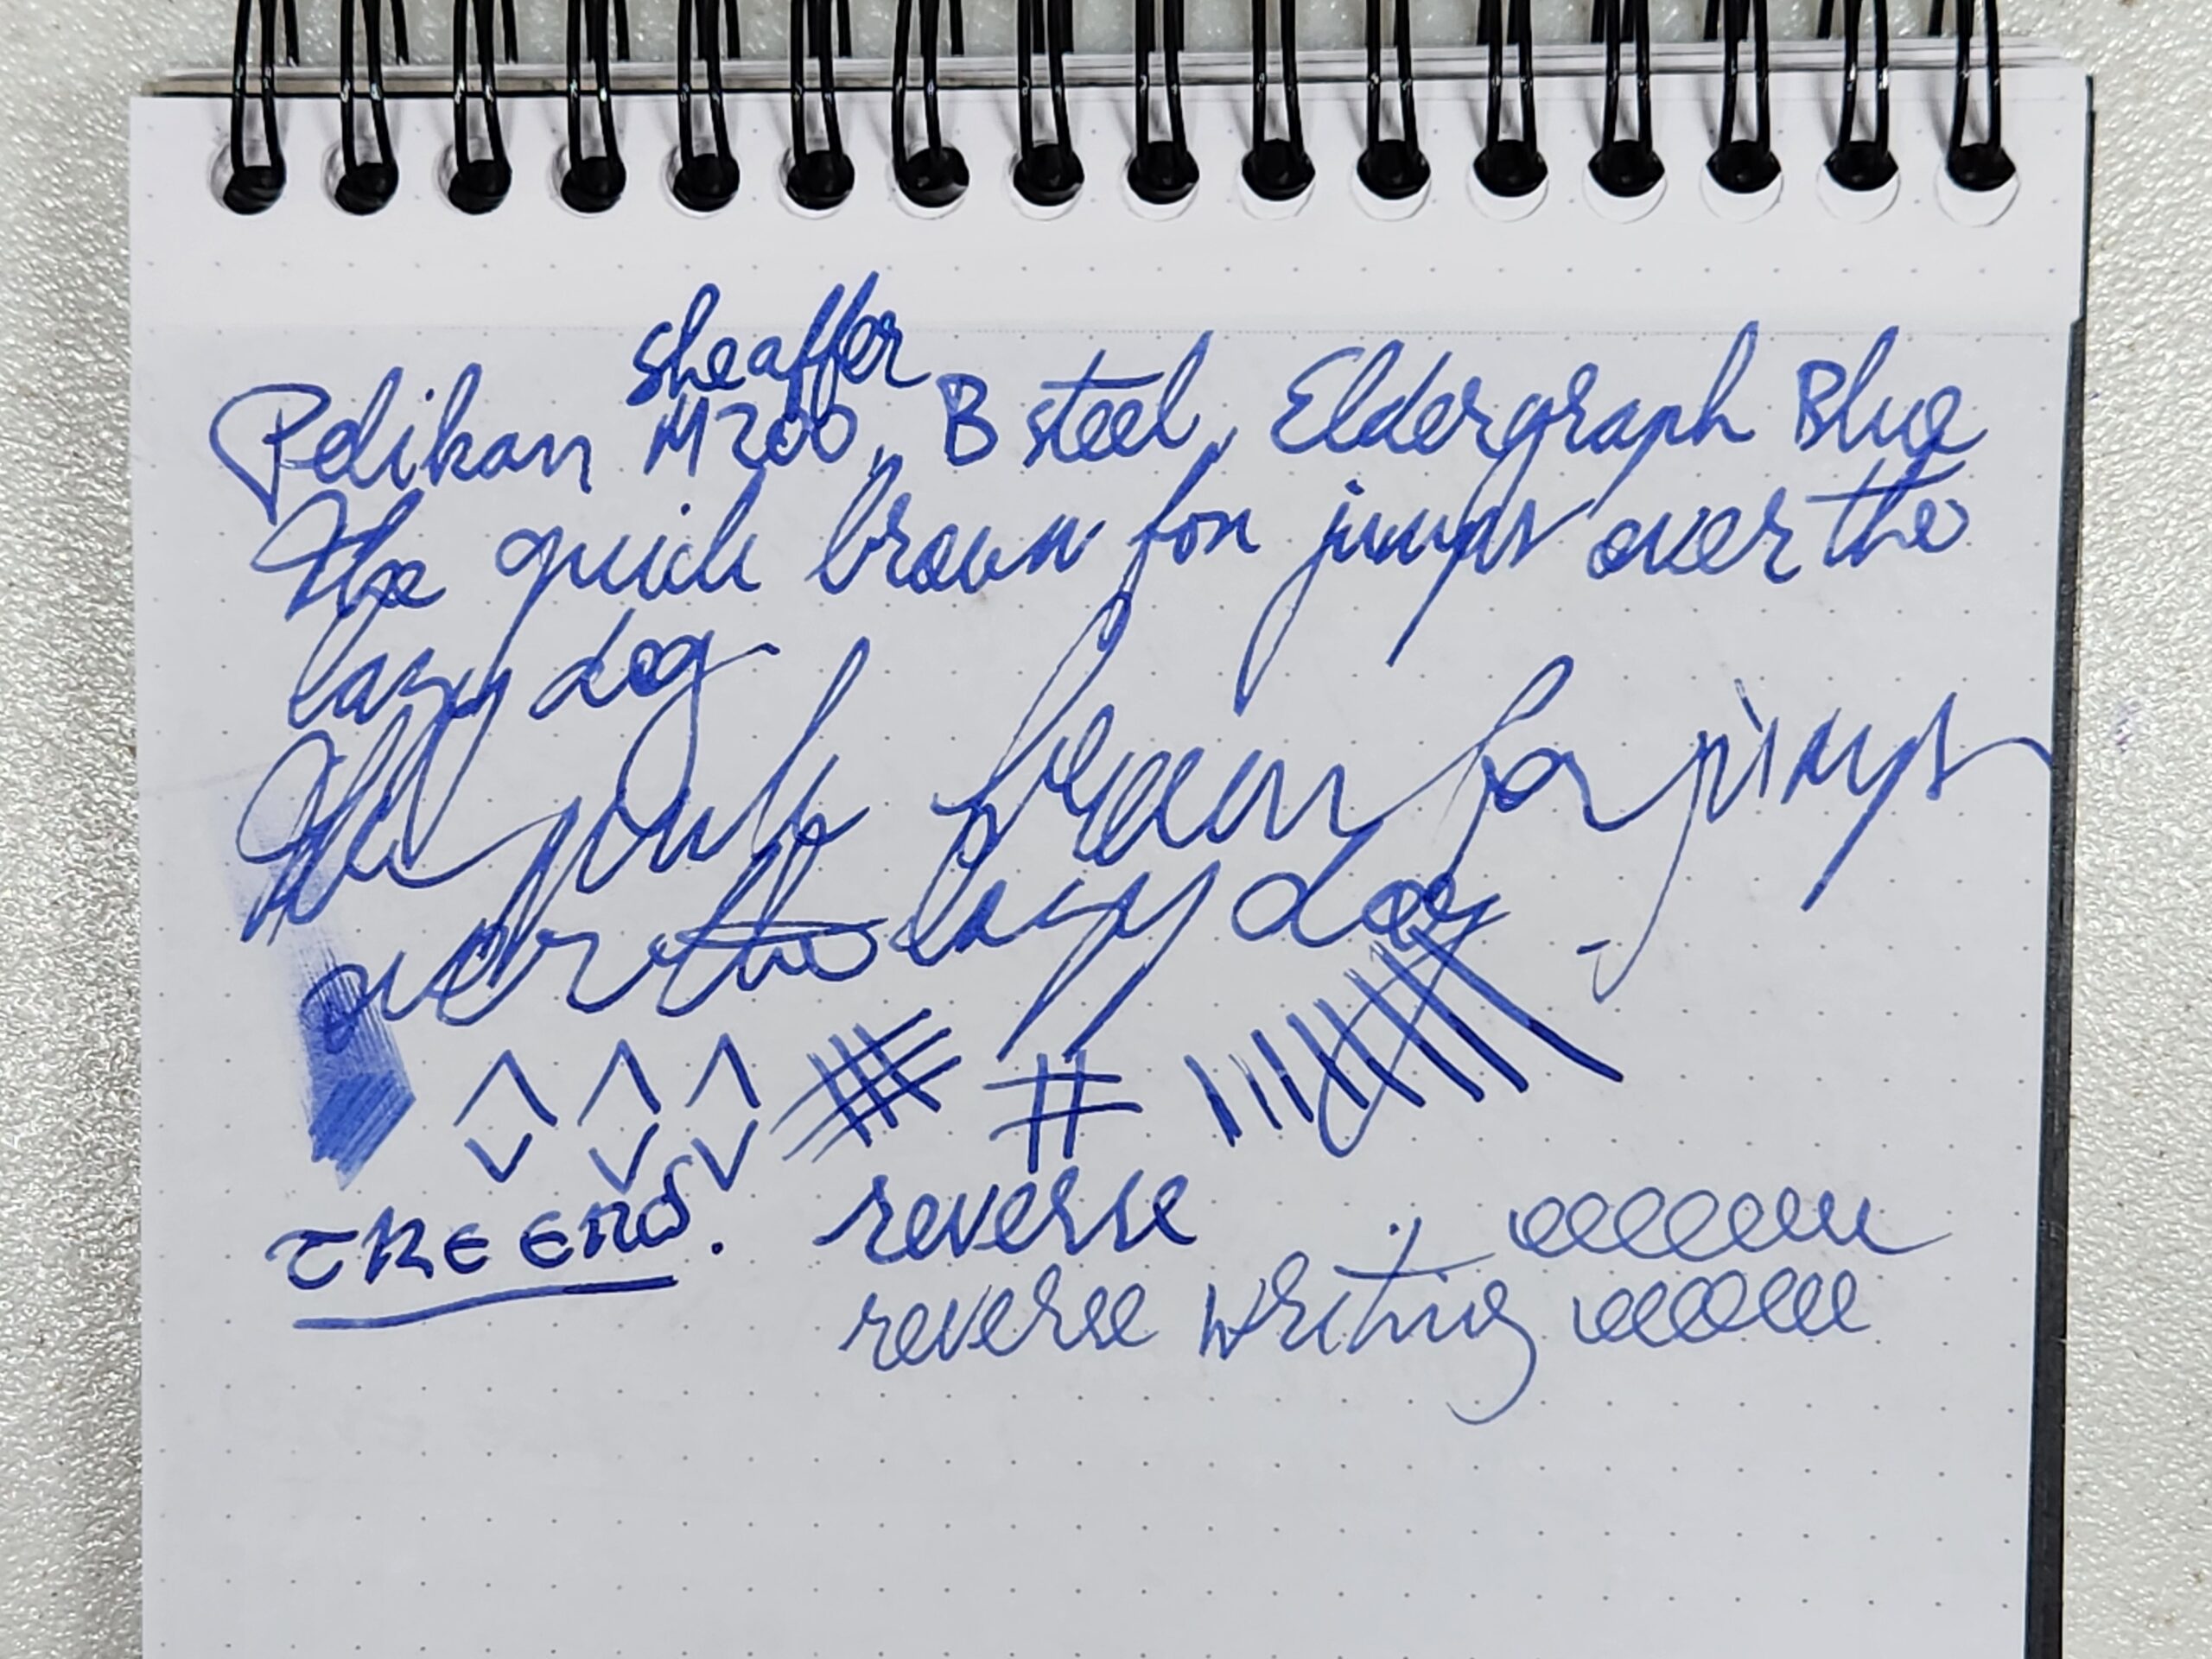 sheaffer
Pelikan M200, B steel, Eldergraph Blue
The quick brown fox jumps over the
lazy dog.
The quick brown fox jumps
over the lazy dog
THE END. reverse
reverse writing